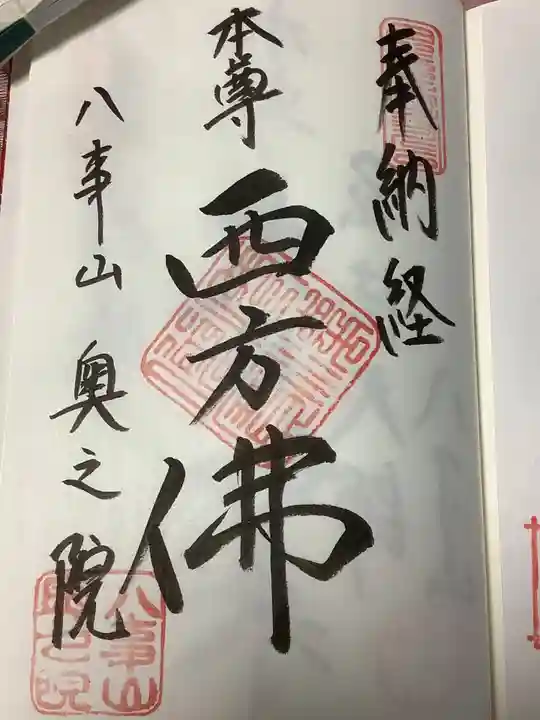 奉納経
本尊
西方佛
八事山 奥之院
八事山
奥之院